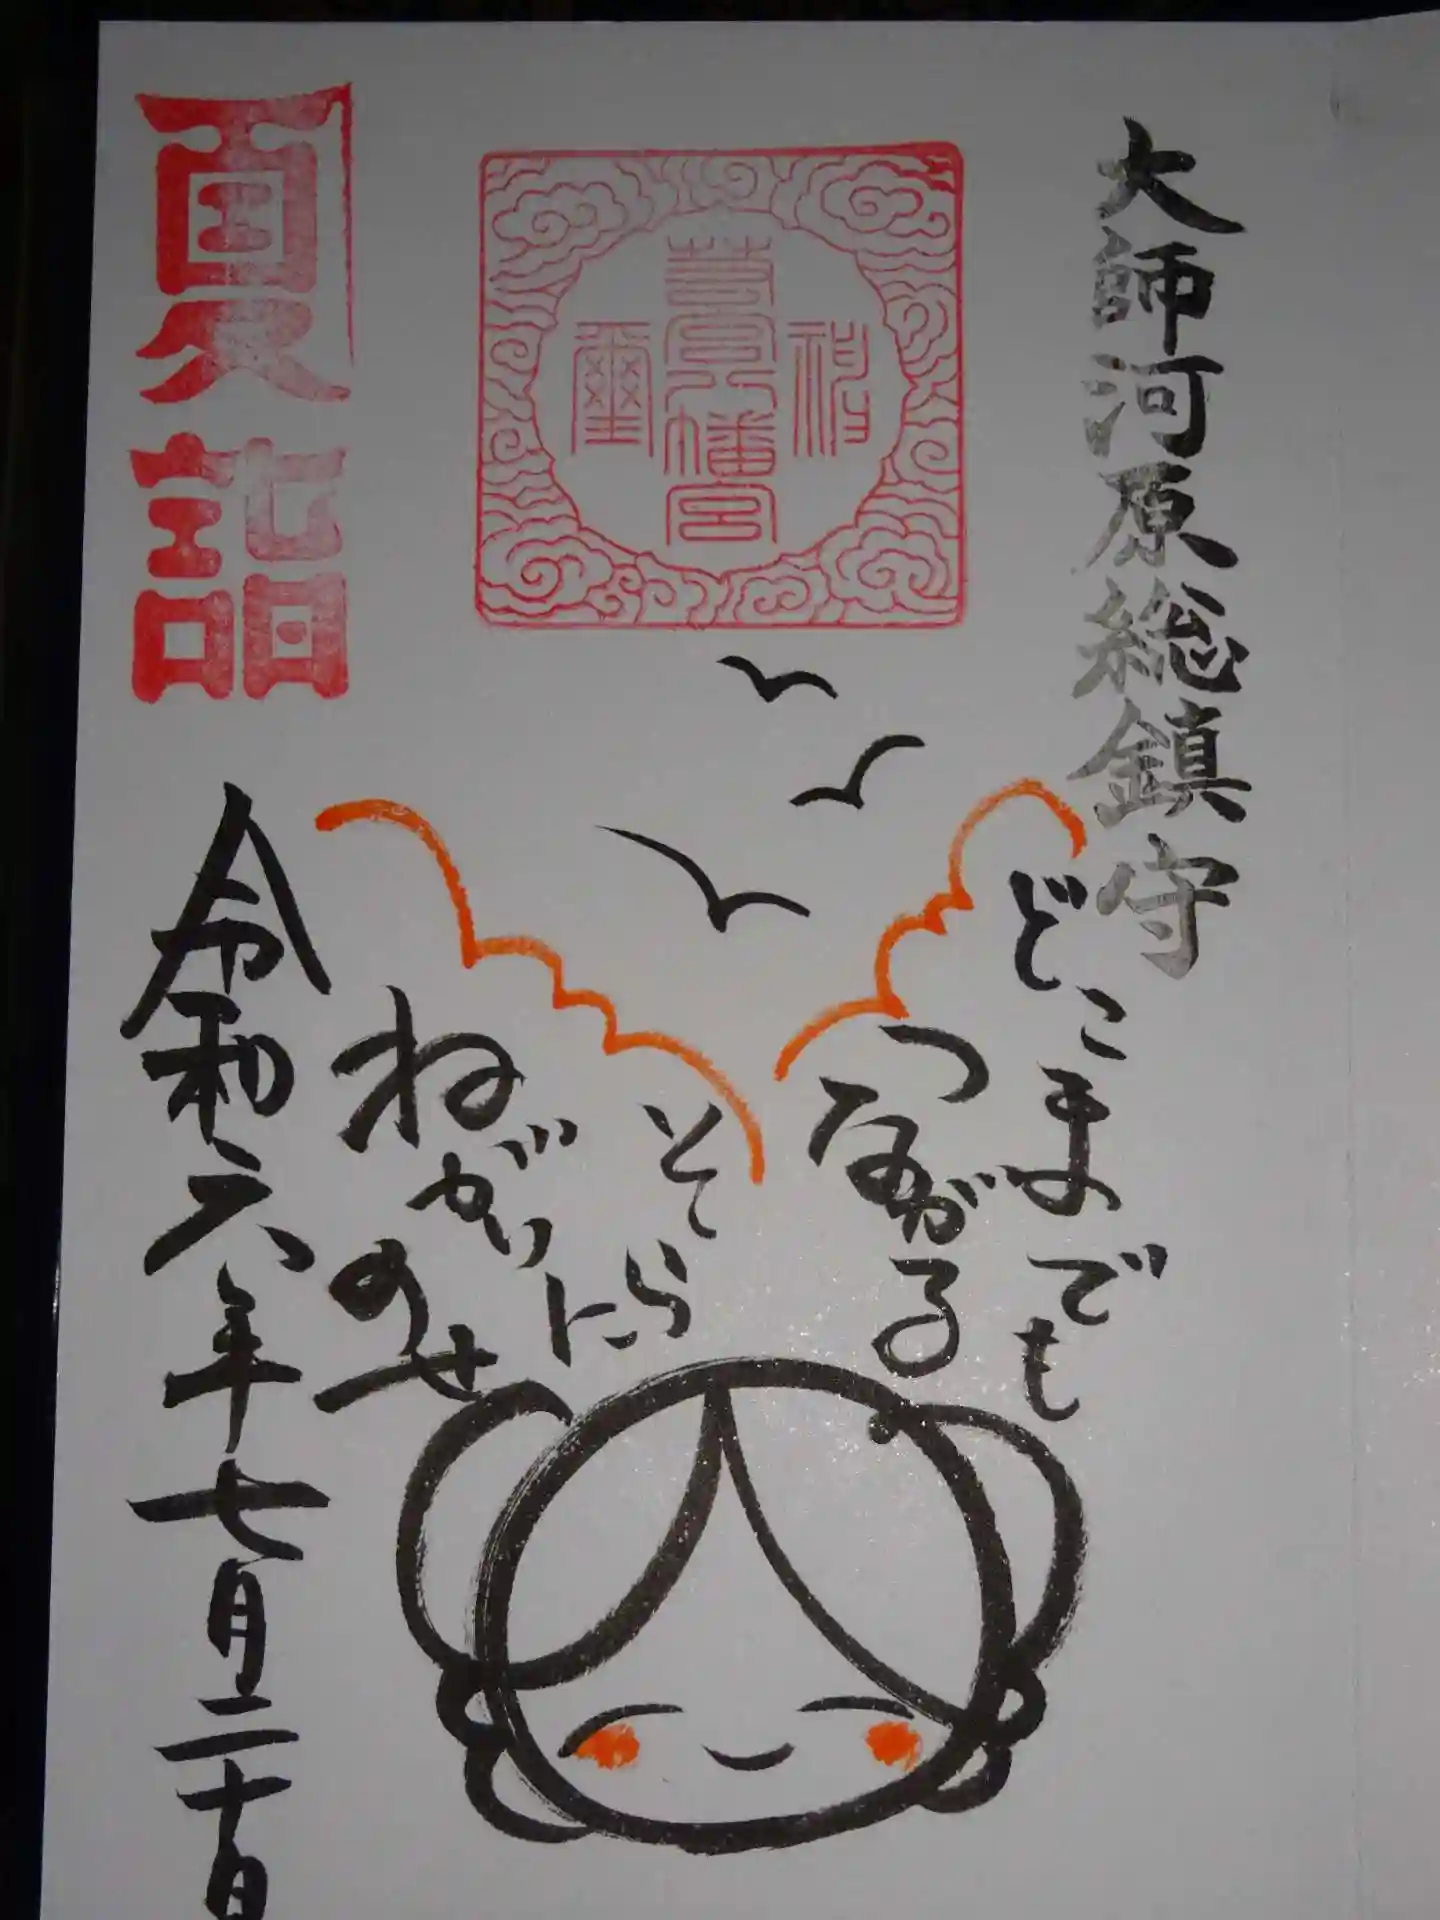 大師河原総鎮守
若宮八幡宮
神璽
どこまでも
つながる
そらに
ねがい
のせ
夏詣
令和六年七月二十日